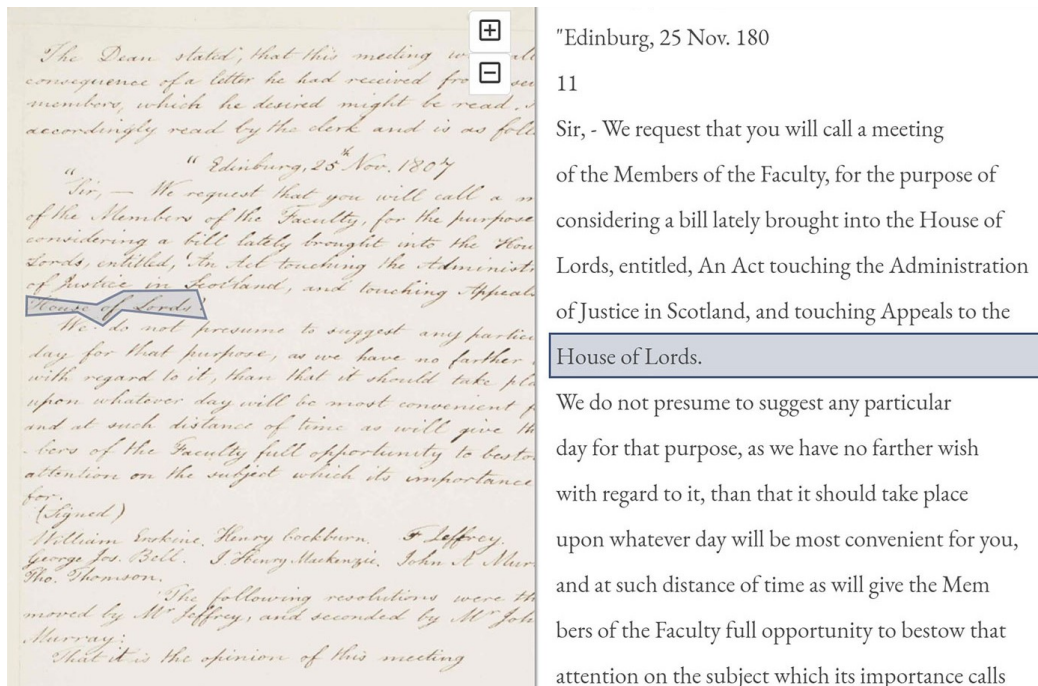 The Dean stated, that this meeting w
consequence of a letter he had received fro
members, which he desired might be read.
accordingly read by the clerk and is as foll
" Edinburg, 25th Nov. 1807
" Sir, — We request that you will call a m
of the Members of the Faculty, for the purpose
considering a bill lately brought into the Hou
Lords, entitled, 'An Act touching the Administr
of Justice in Scotland, and touching Appeals
House of Lords.'
We do not presume to suggest any partic
day for that purpose, as we have no farther
with regard to it, than that it should take pla
upon whatever day will be most convenient f
and at such distance of time as will give th
-bers of the Faculty full opportunity to besto
attention on the subject which its importance
for.
(Signed)
William Erskine. Henry Cockburn. F Jeffrey.
George Jos. Bell. J. Henry Mackenzie. John A Mur
Tho. Thomson.
The following resolutions were th
moved by Mr Jeffrey, and seconded by Mr Joh
Murray:
That it is the opinion of this meeting
"Edinburg, 25 Nov. 180
11
Sir, - We request that you will call a meeting
of the Members of the Faculty, for the purpose of
considering a bill lately brought into the House of
Lords, entitled, An Act touching the Administration
of Justice in Scotland, and touching Appeals to the
House of Lords.
We do not presume to suggest any particular
day for that purpose, as we have no farther wish
with regard to it, than that it should take place
upon whatever day will be most convenient for you,
and at such distance of time as will give the Mem
bers of the Faculty full opportunity to bestow that
attention on the subject which its importance calls